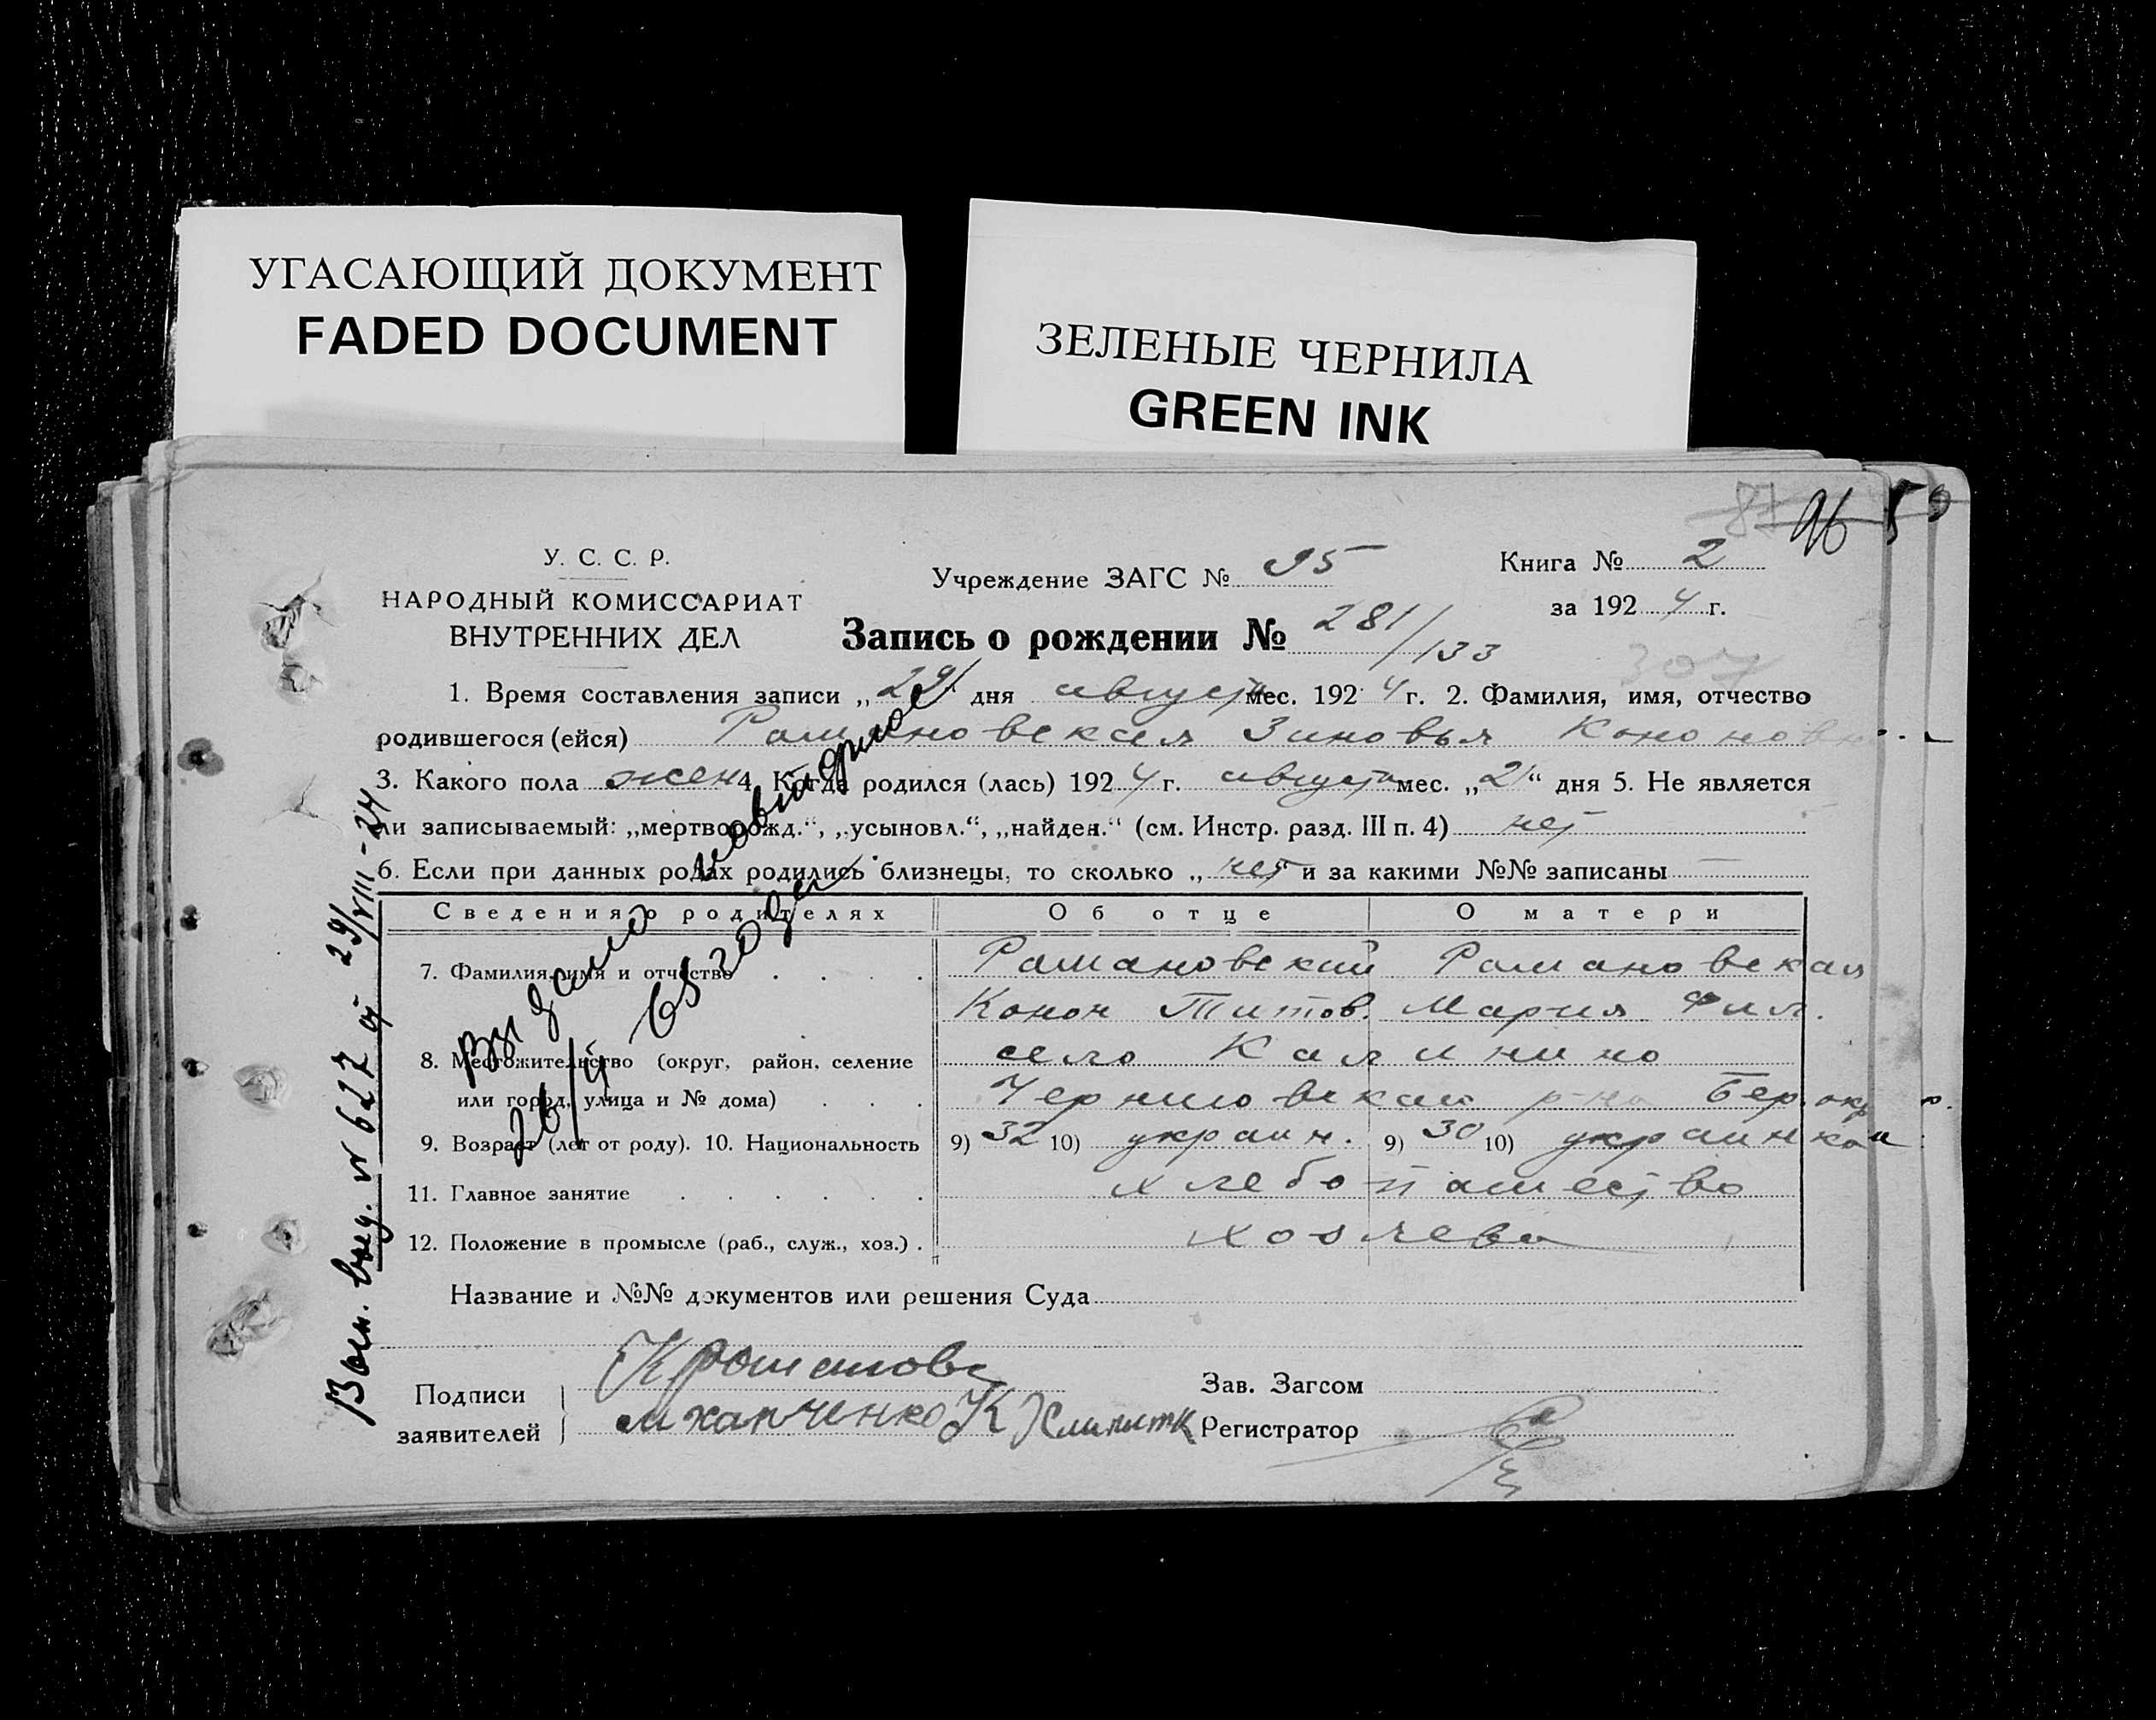 УГАСАЮЩИЙ ДОКУМЕНТ
FADED DOCUMENT
ЗЕЛЕНЫЕ ЧЕРНИЛА
GREEN INK
87 96
У. С. С. Р.
НАРОДНЫЙ КОМИССАРИАТ
ВНУТРЕННИХ ДЕЛ
Учреждение ЗАГС № 95
Книга № 2
за 1924 г.
Запись о рождении № 281/133
307
1. Время составления записи „29“ дня августа мес. 1924 г. 2. Фамилия, имя, отчество
родившегося (ейся) Романовская Зиновья Кононовна
3. Какого пола жен 4. Когда родился (лась) 1924 г. августа мес. „21“ дня 5. Не является
ли записываемый: „мертворожд.“, „усыновл.“, „найден.“ (см. Инстр. разд. III п. 4) нет
6. Если при данных родах родились близнецы, то сколько „нет и за какими №№ записаны —
Сведения о родителях Об отце О матери
7. Фамилия, имя и отчество Романовский Романовская
Конон Титов. Мария Фил.
8. Местожительство (округ, район, селение село Калинино
или город, улица и № дома) Черниговский р-на Бер. окр
9. Возраст (лет от роду). 10. Национальность 9) 32 10) украин. 9) 30 10) украинка
11. Главное занятие хлебопашество
12. Положение в промысле (раб., служ., хоз.) хозяева
Название и №№ документов или решения Суда
Подписи
заявителей
Зав. Загсом
Регистратор
Выдано повторное
26/4 65 года
№ 627 от 29/VIII-24